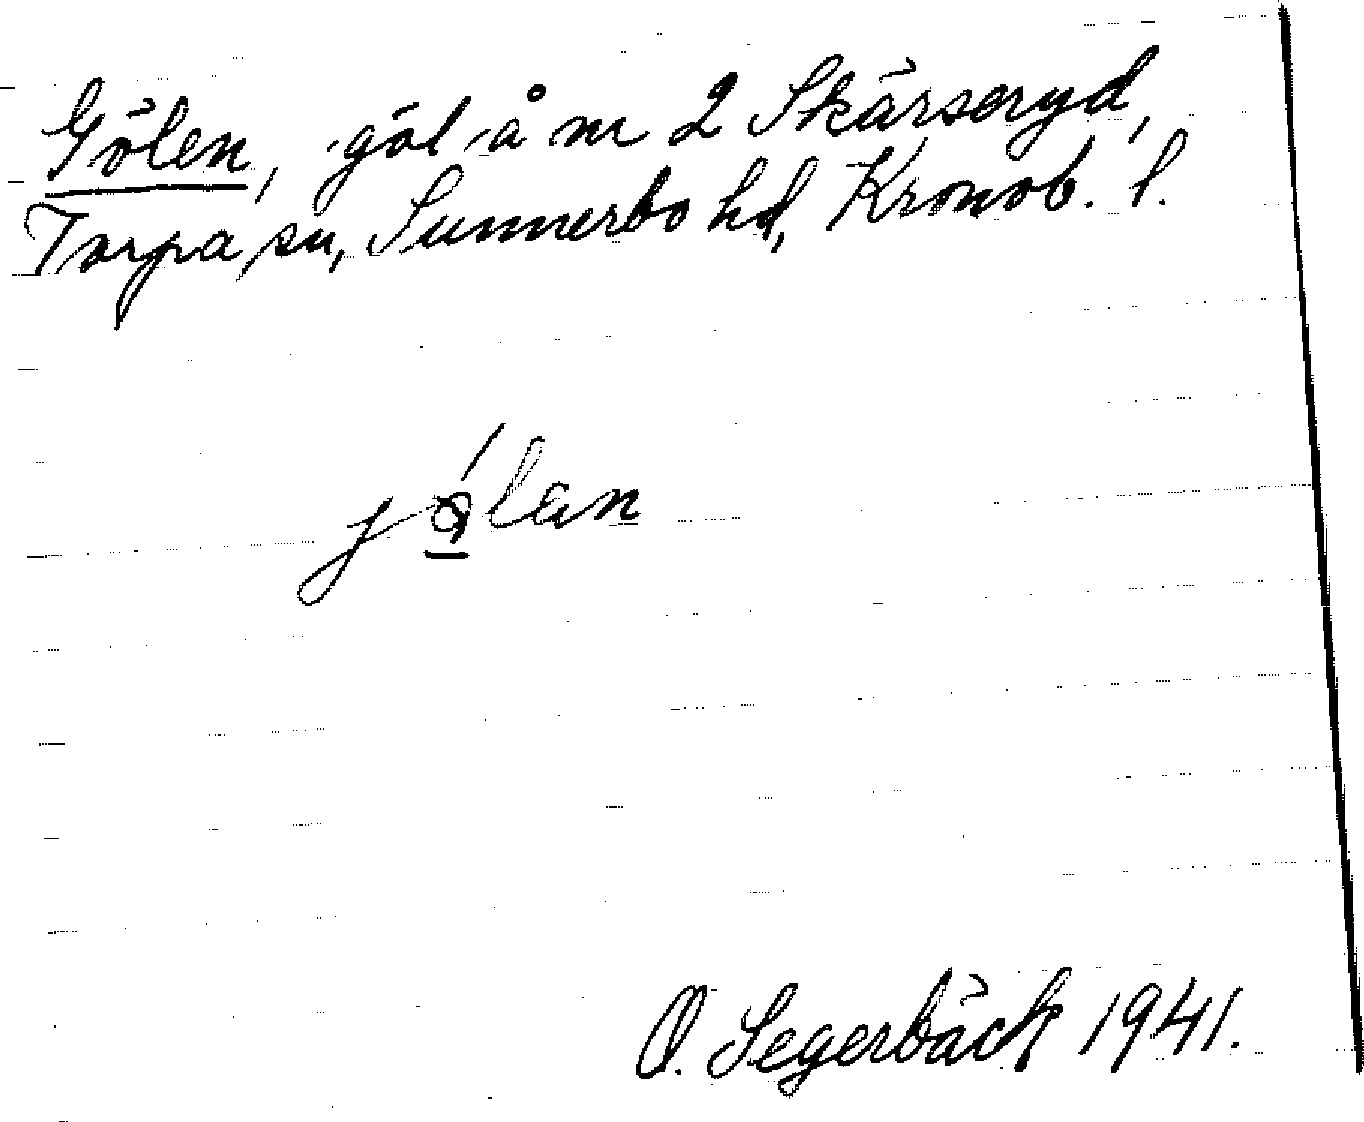 Gölen, göl å nr 2 Skärseryd,
Torpa sn, Sunnerbo hd, Kronob. l.
O. Segerbäck 1941.